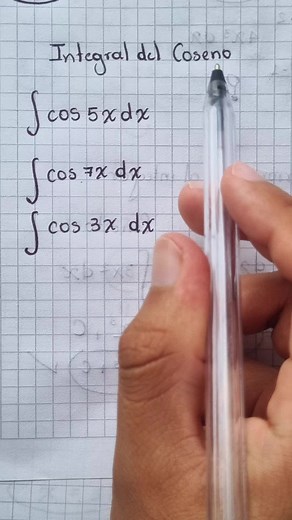 Integral del Coseno
∫ cos 5x dx
∫ cos 7x dx
∫ cos 3x dx